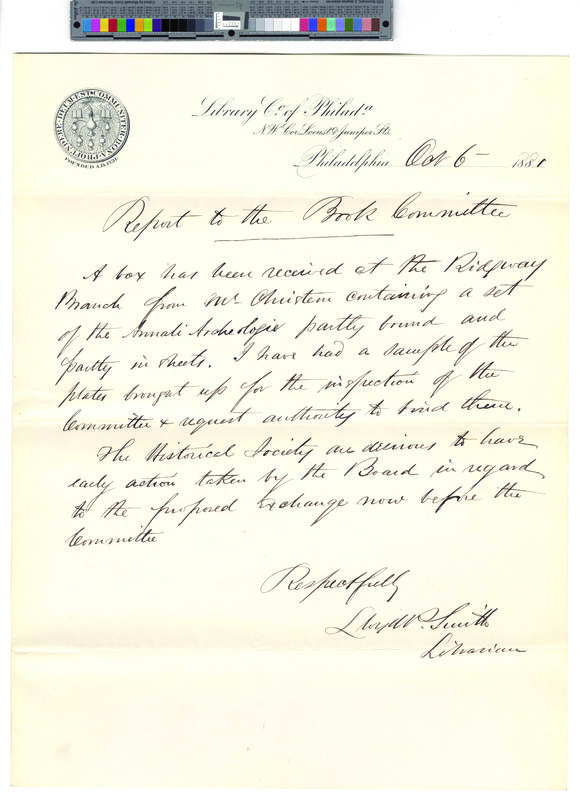 COMMUNITER BONA PROFUNDERE DEUM EST
FOUNDED A.D. 1731.
Library Co. of Philada.
N.W. Cor. Locust & Juniper Sts.
Philadelphia Oct 6 1881
Report to the Book Committee
A box has been received at the Ridgway
Branch from Mr Christern containing a set
of the Annali Archeologie partly bound and
partly in sheets. I have had a sample of the
plates brought up for the inspection of the
Committee & request authority to bind them.
The Historical Society are desirous to have
early action taken by the Board in regard
to the proposed exchange now before the
Committee
Respectfully
Lloyd P. Smith
Librarian